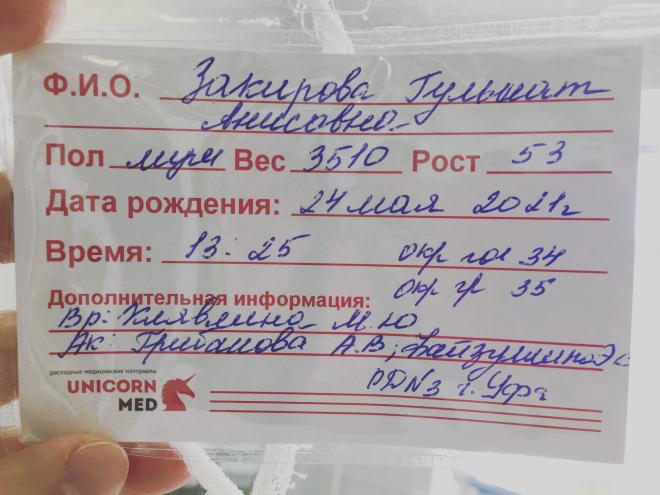 Ф.И.О. Закирова Гульшат
Анисовна
Пол муж Вес 3510 Рост 53
Дата рождения: 24 мая 2021г
Время: 13:25 окр гол 34
Дополнительная информация: окр гр 35
Вр: Клявлина М.Ю
Ак: Грибанова А.В; Файзуллина Э
РДN3 г. Уфа
расходные медицинские материалы
UNICORN
MED